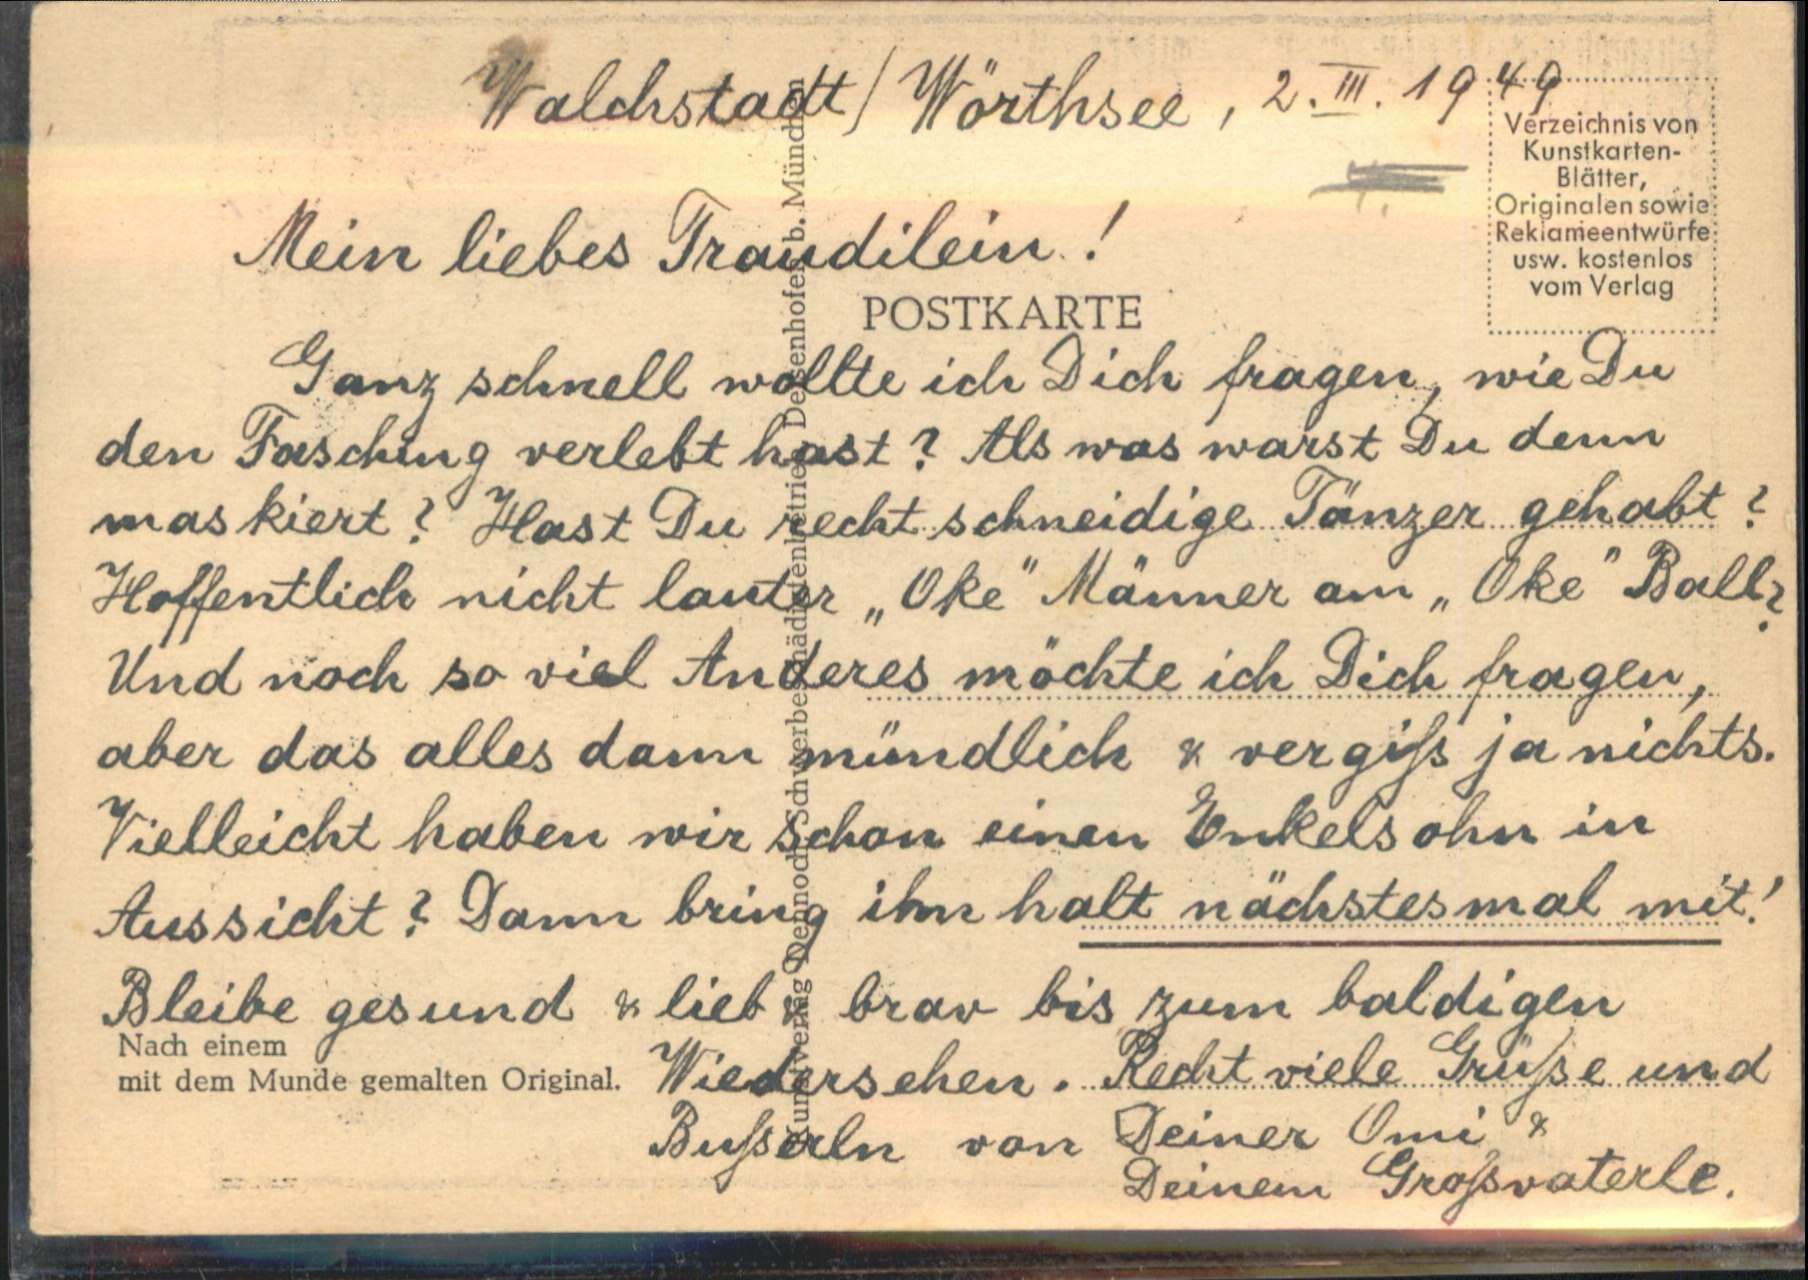 Walchstadt / Wörthsee, 2. III. 1949
Verzeichnis von
Kunstkarten-
Blätter,
Originalen sowie
Reklameentwürfe
usw. kostenlos
vom Verlag
Mein liebes Traudilein!
POSTKARTE
Ganz schnell wollte ich Dich fragen, wie Du
den Fasching verlebt hast? Als was warst Du denn
maskiert? Hast Du recht schneidige Tänzer gehabt?
Hoffentlich nicht lauter „Oke" Männer am „Oke" Ball?
Und noch so viel Anderes möchte ich Dich fragen,
aber das alles dann mündlich & vergiß ja nichts.
Vielleicht haben wir schon einen Enkelsohn in
Aussicht? Dann bring ihn halt nächstesmal mit!
Bleibe gesund & lieb & brav bis zum baldigen
Wiedersehen. Recht viele Grüße und
Busserln von Deiner Omi &
Deinem Großvaterle.
Nach einem
mit dem Munde gemalten Original.
Kunstverlag Dennoch, Schwerbeschädigtenbetrieb Deisenhofen b. München